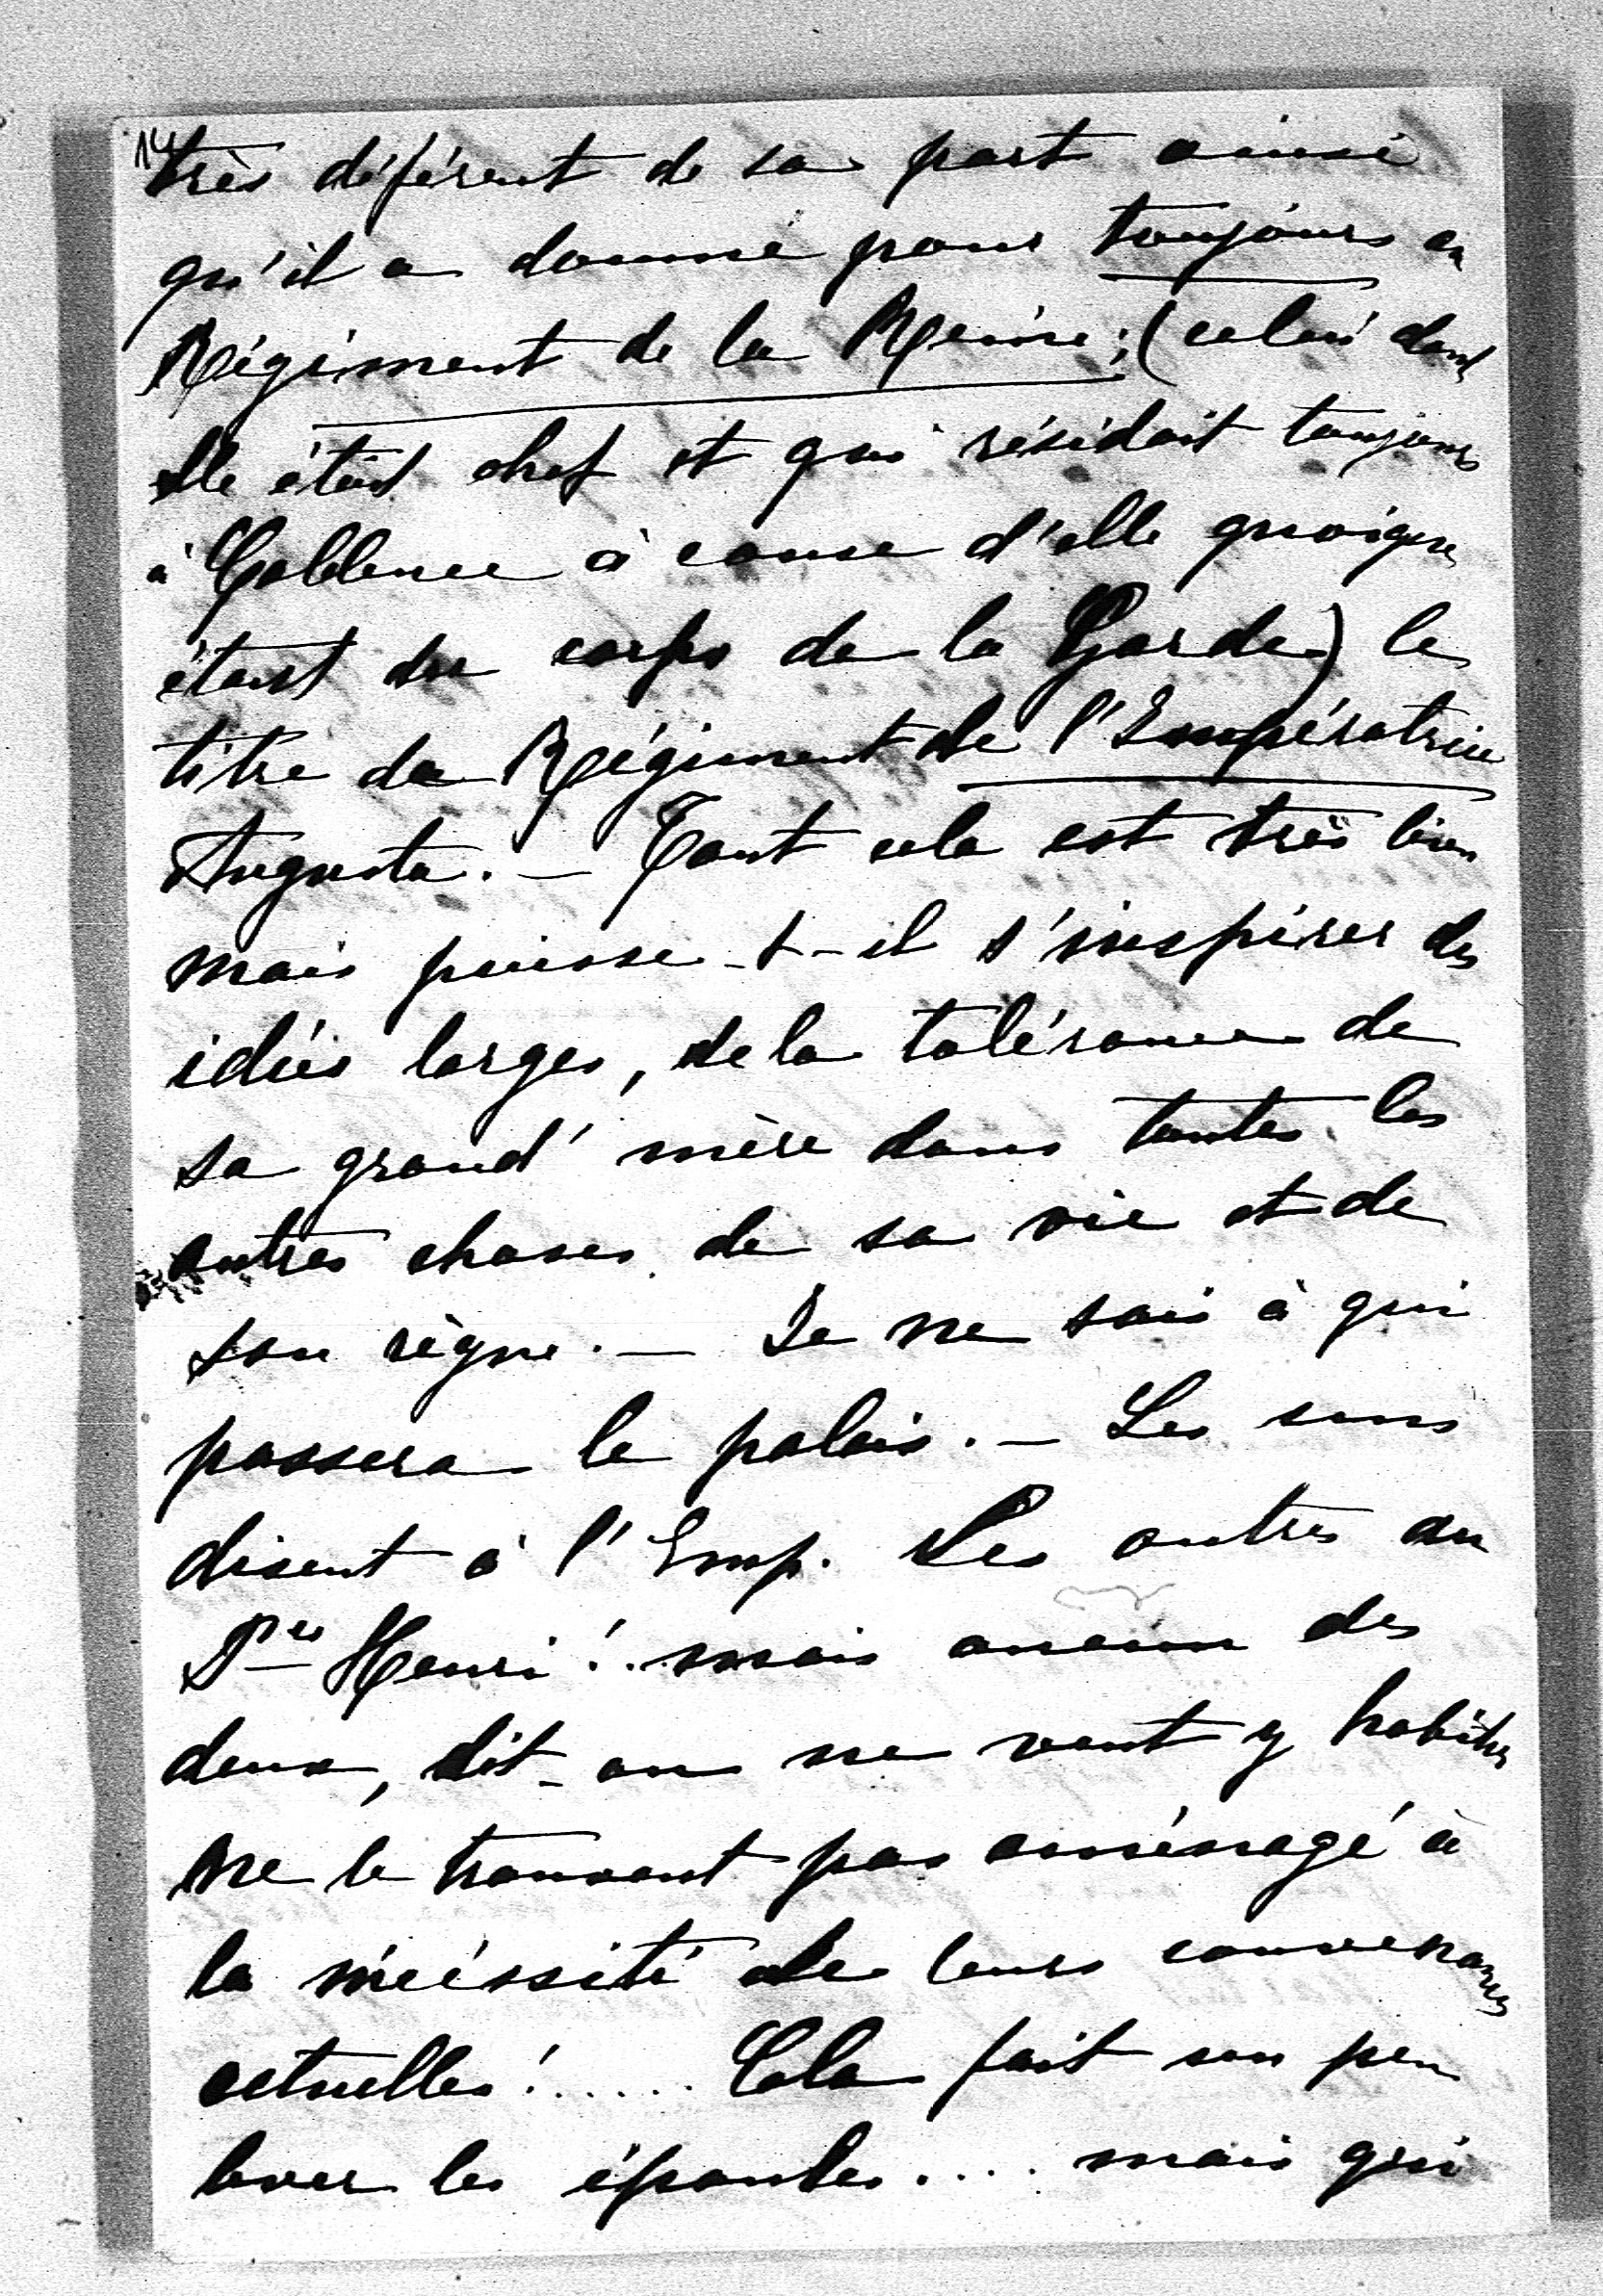 14
très déférent de sa part ainsi
qu'il a donné pour toujours au
Régiment de la Reine; (celui dont
elle était chef et qui résidait toujours
à Coblence à cause d'elle quoique
étant du corps de la Garde) le
titre de Régiment de l'Impératrice
Augusta. — Tout cela est très bien
mais puisse-t-il s'inspirer des
idées larges, de la tolérance de
sa grand'mère dans toutes les
autres choses de sa vie et de
son règne. — Je ne sais à qui
passera le palais. — Les uns
disent à l'Emp. Les autres au
Pce Henri!.. mais aucun des
deux, dit-on ne veut y habiter
ne le trouvant pas aménagé à
la nécessité de leurs convenances
actuelles!..... Cela fait un peu
lever les épaules.... mais qui